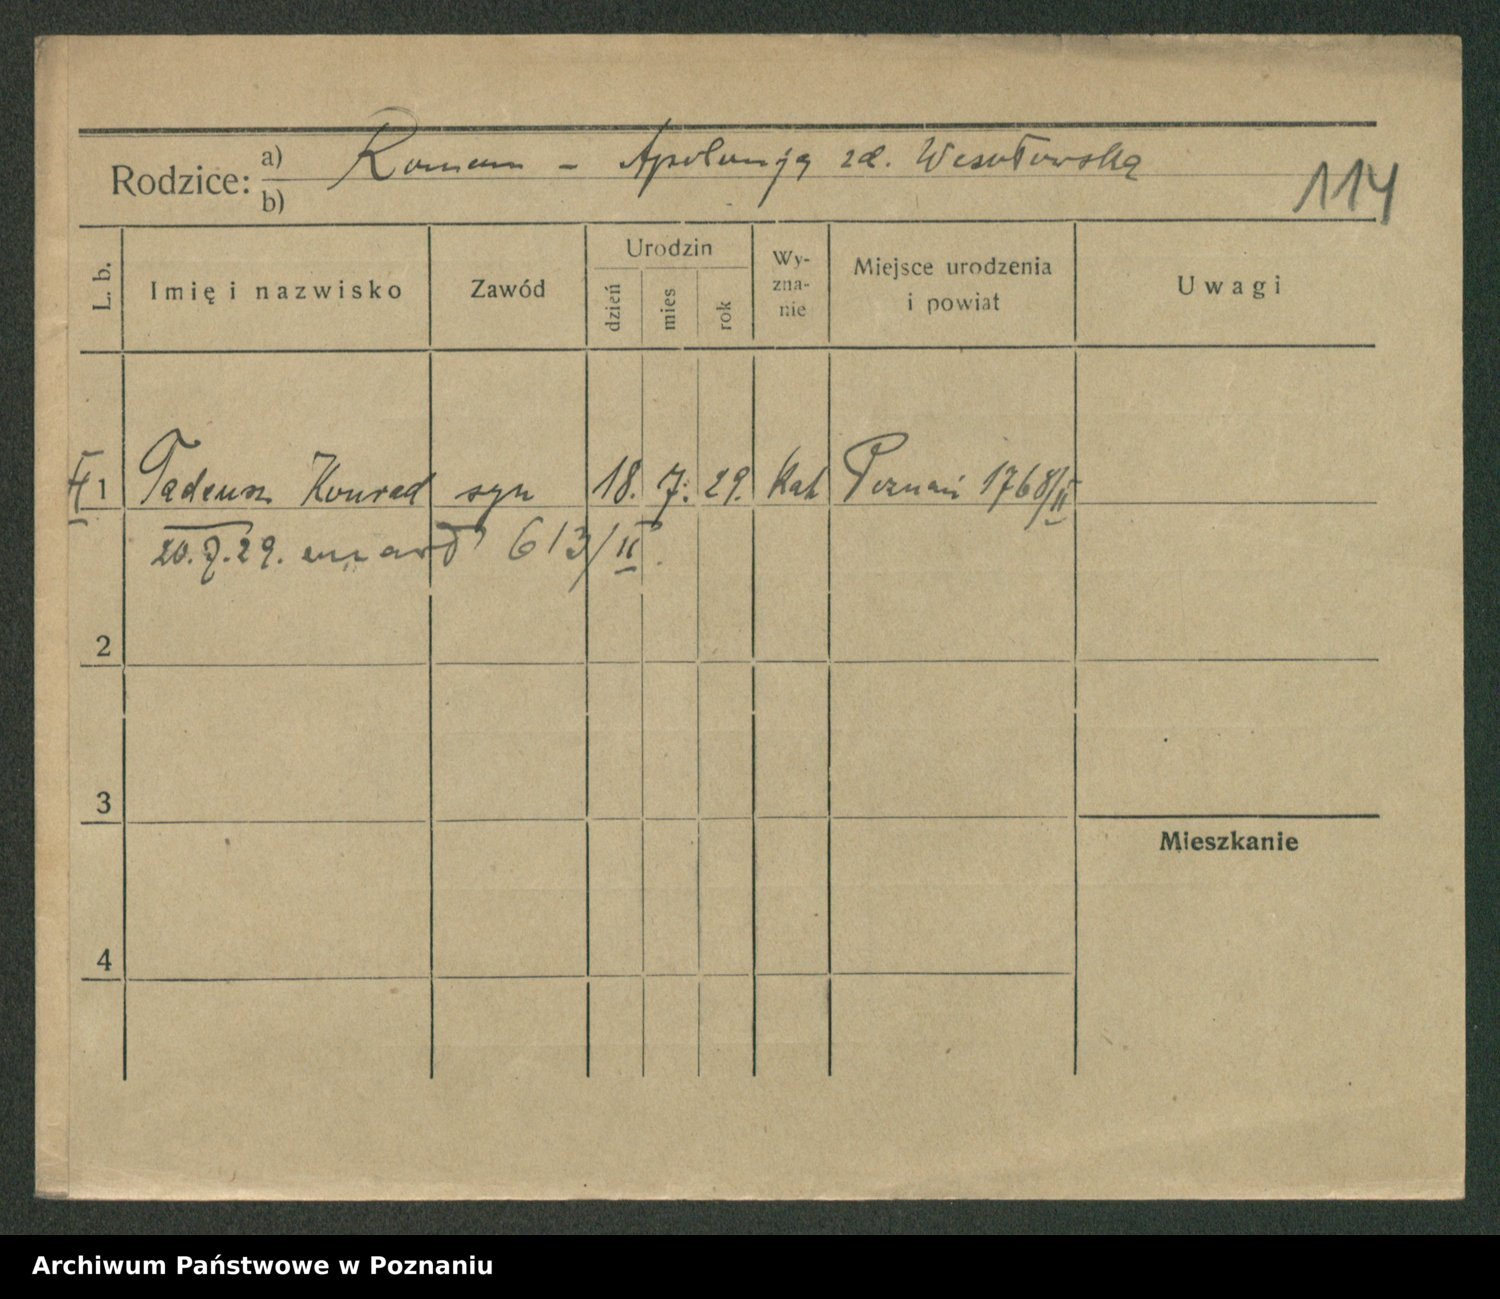 Rodzice: a) Roman - Apolonja zd. Wesołowska
b)
114
L. b. Imię i nazwisko Zawód Urodzin dzień mies rok Wy-zna-nie Miejsce urodzenia i powiat Uwagi
1 Tadeusz Konrad syn 18. 7. 29. kat Poznań 1768/II
20.7.29. zmarł 613/II.
2
3
Mieszkanie
4
Archiwum Państwowe w Poznaniu